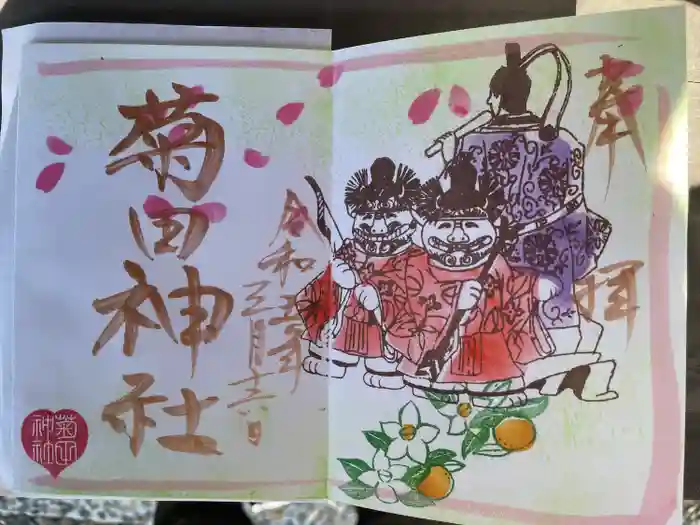 奉拝
令和五年
三月十六日
菊田神社
菊田
神社